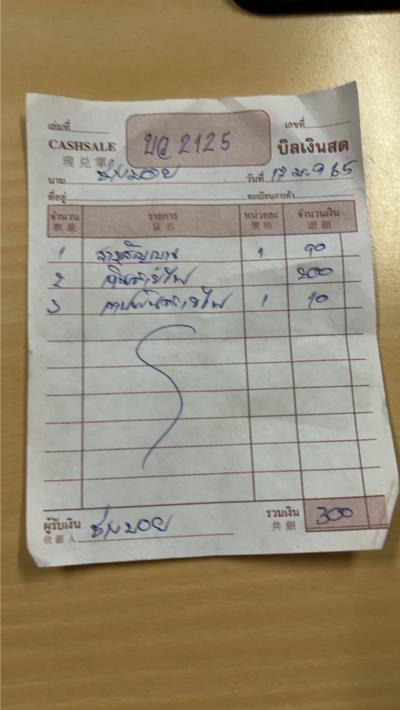 เล่มที่ เลขที่
CASHSALE บว 2125 บิลเงินสด
現兑單
นาม ช่างบอย วันที่ 12 ม.ค 65
ที่อยู่ ทะเบียนการค้า
จำนวน รายการ หน่วยละ จำนวนเงิน
數量 貨名 價格 銀額
1 สายสัญญาณ 1 90
2 เดินสายไฟ 200
3 เทปพันสายไฟ 1 10
ผู้รับเงิน ช่างบอย รวมเงิน 300
收銀人 共銀